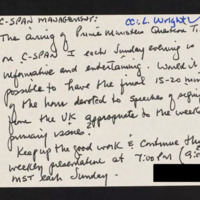 C-SPAN MANAGEMENT: cc: L. Wright
The airing of Prime Ministers Question Ti
on C-SPAN I each Sunday evening is
informative and entertaining. Would it
possible to have the final 15-20 min
of the hour devoted to speeches of
from the UK appropriate to the week
primary issues?
Keep up the good work & continue the
weekly presentation at 7:00PM (9:0
MST each Sunday.